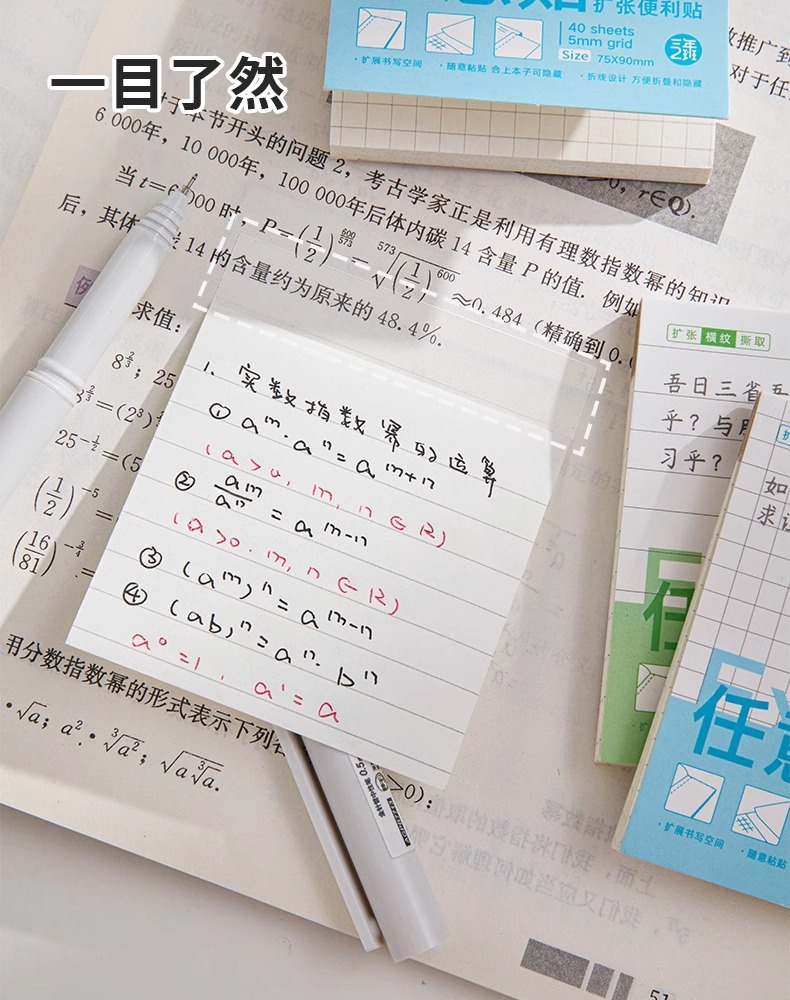 一目了然
扩张便利贴
40 sheets
5mm grid
Size 75X90mm
·扩展书写空间 ·随意粘贴 合上本子可隐藏 ·折线设计 方便折叠和隐藏
对于本节开头的问题 2，考古学家正是利用有理数指数幂的知识
6 000年，10 000年，100 000年后体内碳 14 含量 P 的值. 例如
当t=6 000 时，P=(1/2)^(600/573)=573√(1/2)^600≈0.484（精确到0.0
后，其体 碳 14 的含量约为原来的 48.4%.
r∈Q).
例
求值：
8^(2/3)；25
8^(2/3)=(2³)
25^(-1/2)=(5
(1/2)^-5
(16/81)^(-3/4)=
1、实数指数幂的运算
① aᵐ·aⁿ=aᵐ⁺ⁿ
(a>0, m, n∈R)
② aᵐ/aⁿ=aᵐ⁻ⁿ
(a>0. m, n∈R)
③ (aᵐ)ⁿ=aᵐ⁻ⁿ
④ (ab)ⁿ=aⁿ·bⁿ
a⁰=1, a¹=a
用分数指数幂的形式表示下列各
·√a；a²·∛a²；√a∛a.
>0)：
扩张 横纹 撕取
吾日三省吾
乎？与朋
习乎？
任
如
求
任意
·扩展书写空间 ·随意粘贴
51